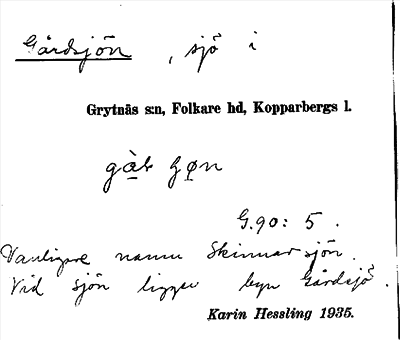 Gårdsjön, sjö i
Grytnäs s:n, Folkare hd, Kopparbergs l.
G.90: 5.
Vanligare namn Skinnarsjön.
Vid sjön ligger byn Gårdsjö.
Karin Hessling 1935.